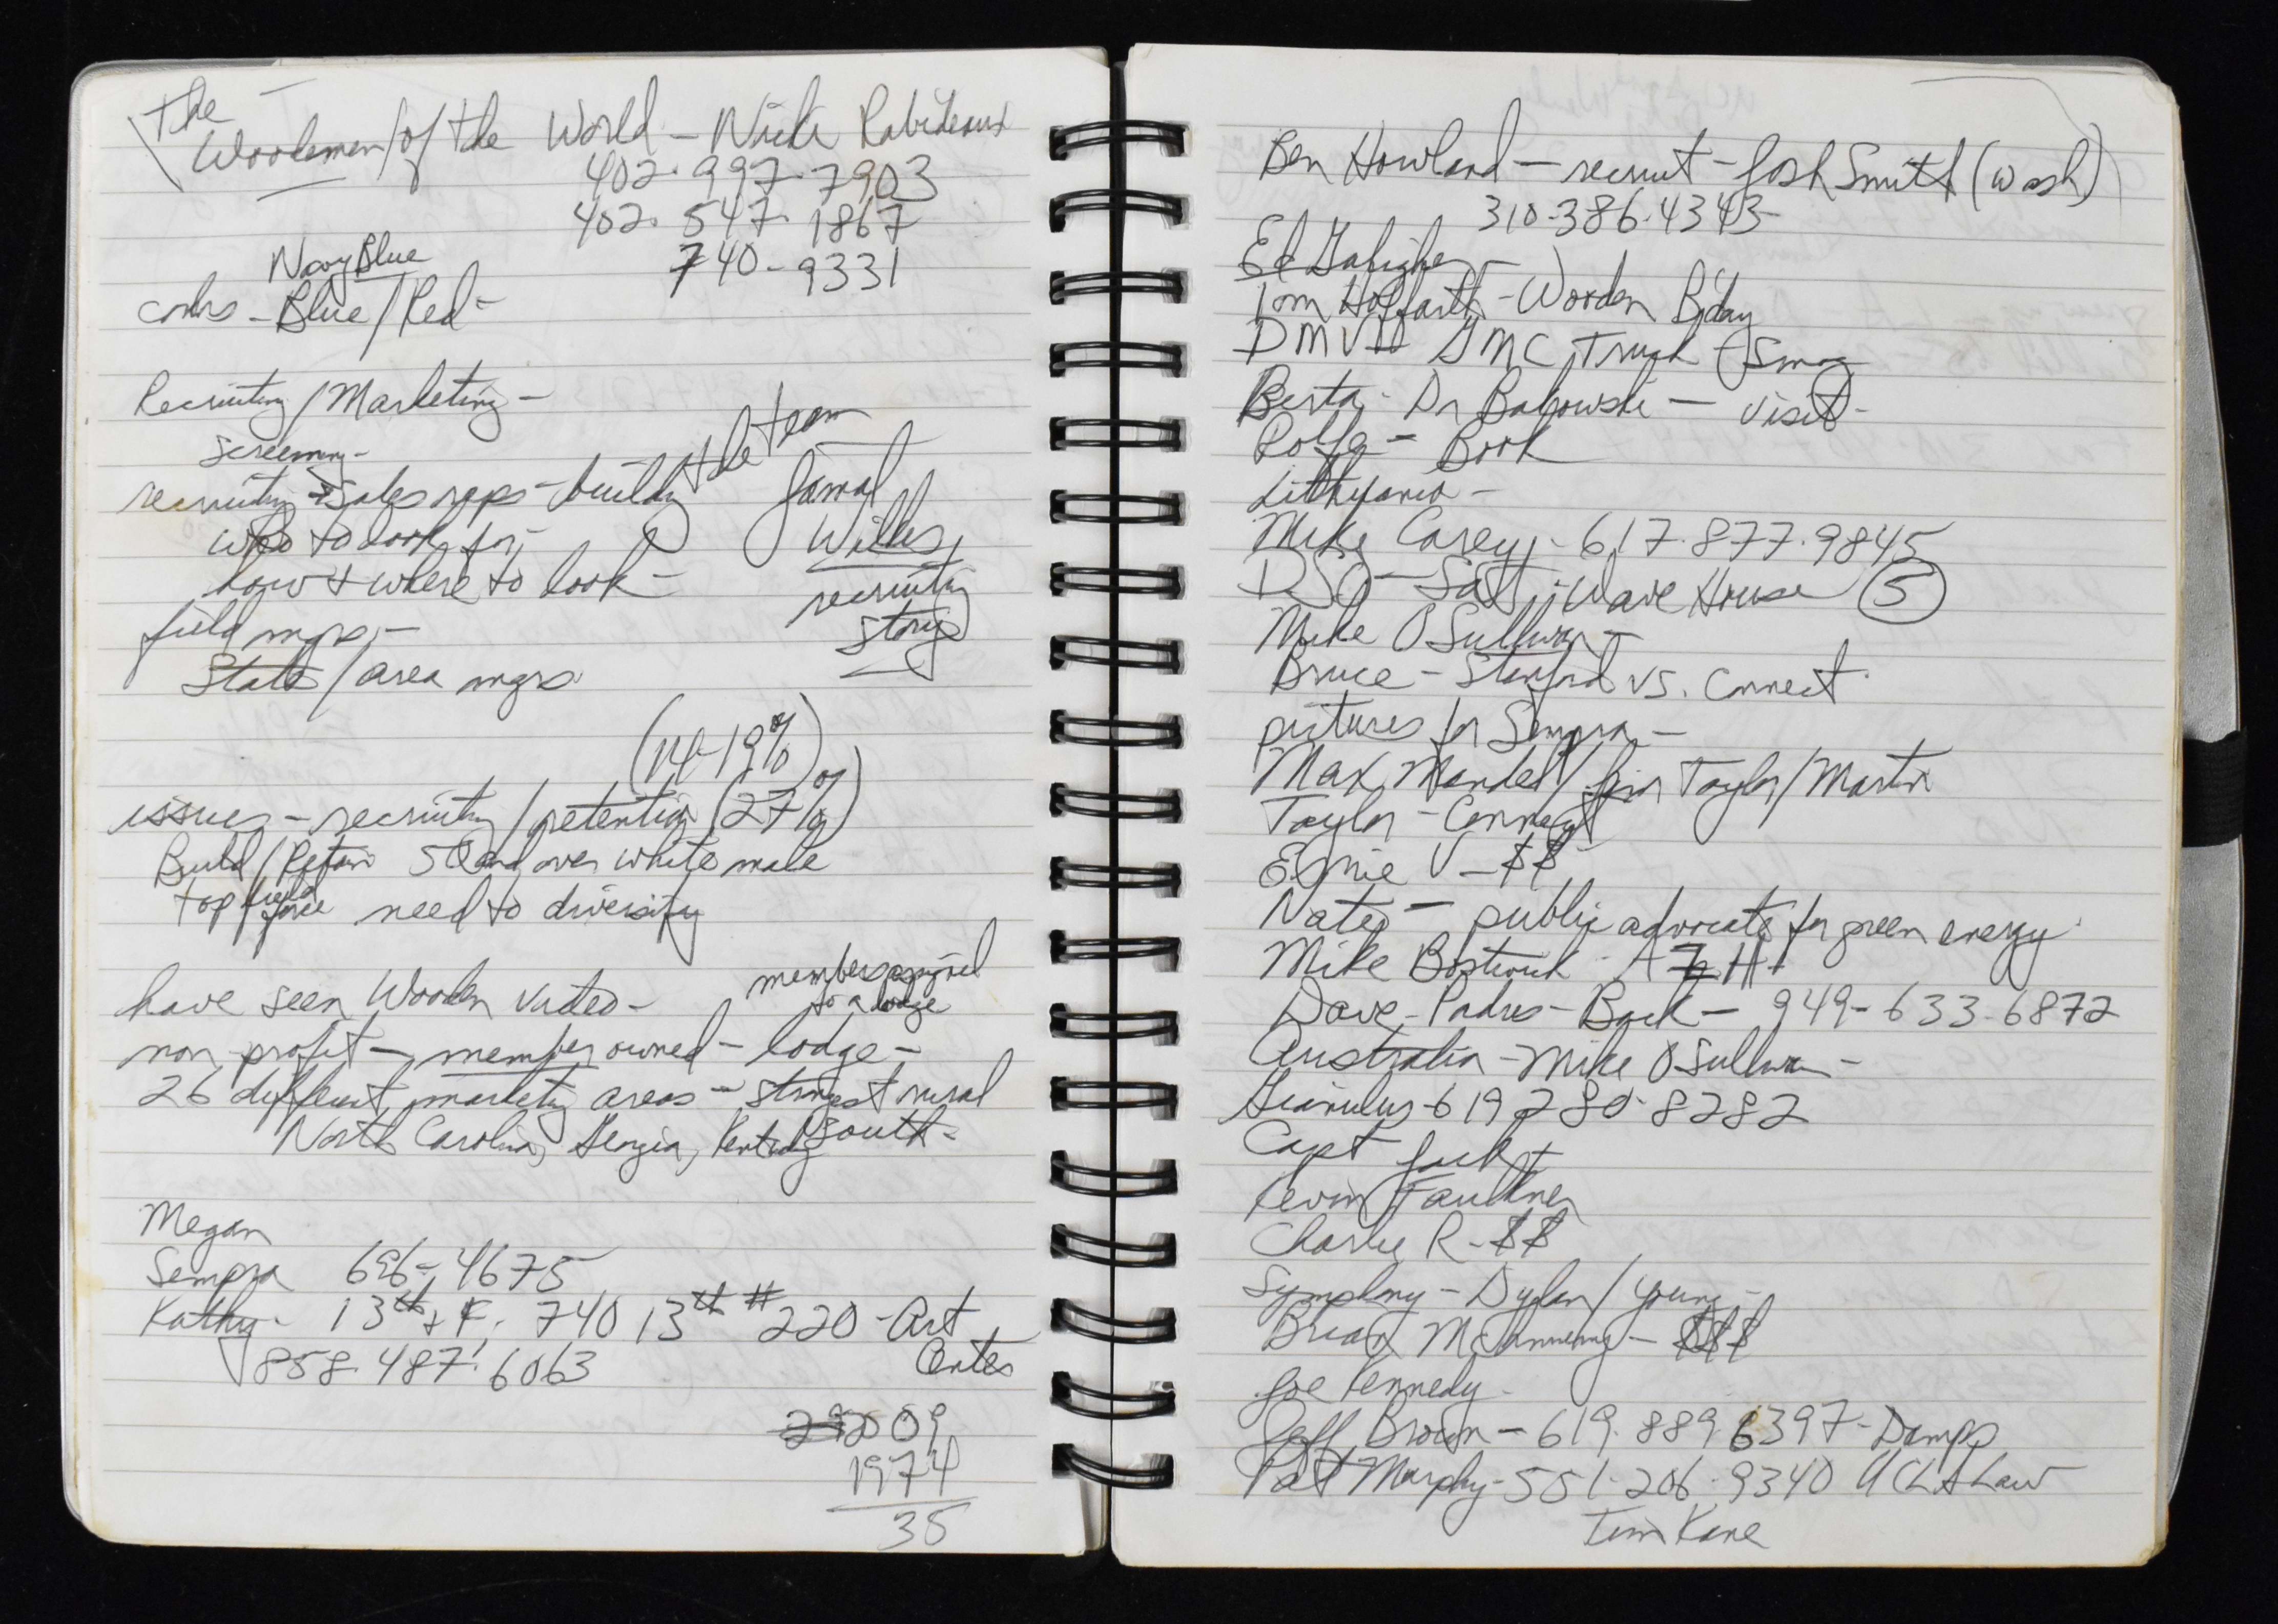 The
Woodsmen/of the World - Nicki Rabideaux
402.997.7903
402.547.1867
740-9331
Navy Blue
colors - Blue/Red -
Recruiting/Marketing -
screening -
recruiting + sales reps - building the team
Jamal
Wilkes
recruiting
story
who to look for -
how + where to look -
field mgrs. -
State/area mgrs
(14-19%)
issues - recruiting/retention (27%)
Build/Retain 50 and over white male
top field force need to diversify
have seen Wooden video -
members assigned
to a lodge
non-profit - member owned - lodge -
26 different marketing areas - strongest rural
North Carolina, Georgia, Kentucky south -
Megan
Sempra 696-4675
Kathy - 13th + F. 740 13th # 220 - Art
Center
858.487.6063
2009
1974
35
Ben Howland - recruit - Josh Smith (Wash)
310-386-4343
Ed
Tom Hoffarth - Wooden B'day
DMV GMC Truck - Smog
Berta - Dr Bakowski - visit -
Rolfe - Book
Lithuania -
Mike Casey - 617.877.9845
DSC - Sat - Wave House 5
Mike O'Sullivan -
Bruce - Stanford vs. Connect
pictures for Sempra -
Max Mandel/for Taylor/Martin
Taylor - Connect
Ernie V - $$
Nate - public advocate for green energy
Mike Bostwick -
Dave - Padres - Back - 949-633-6872
Australia - Mike O'Sullivan -
Gianulus - 619 280-8282
Capt Jack
Kevin Faulkner
Charlie R - $$
Symphony - Dylan/Young -
Brian - $$$
Joe Kennedy -
Jeff Brown - 619.889.6397 - Damps
Pat Murphy - 551-206-9340 UCLA Law
Tim Kane